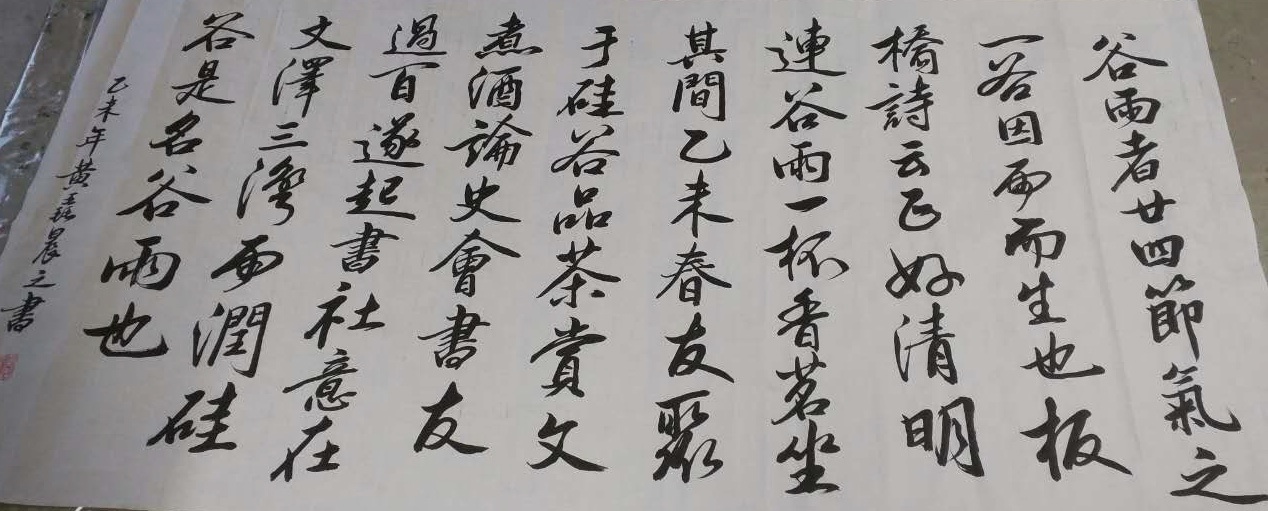 谷雨者廿四節氣之
一谷因雨而生也板
橋詩云正好清明
連谷雨一杯香茗坐
其間乙未春友聚
于硅谷品茶賞文
煮酒論史會書友
過百遂起書社意在
文澤三灣雨潤硅
谷是名谷雨也
乙未年黃磊晨之書